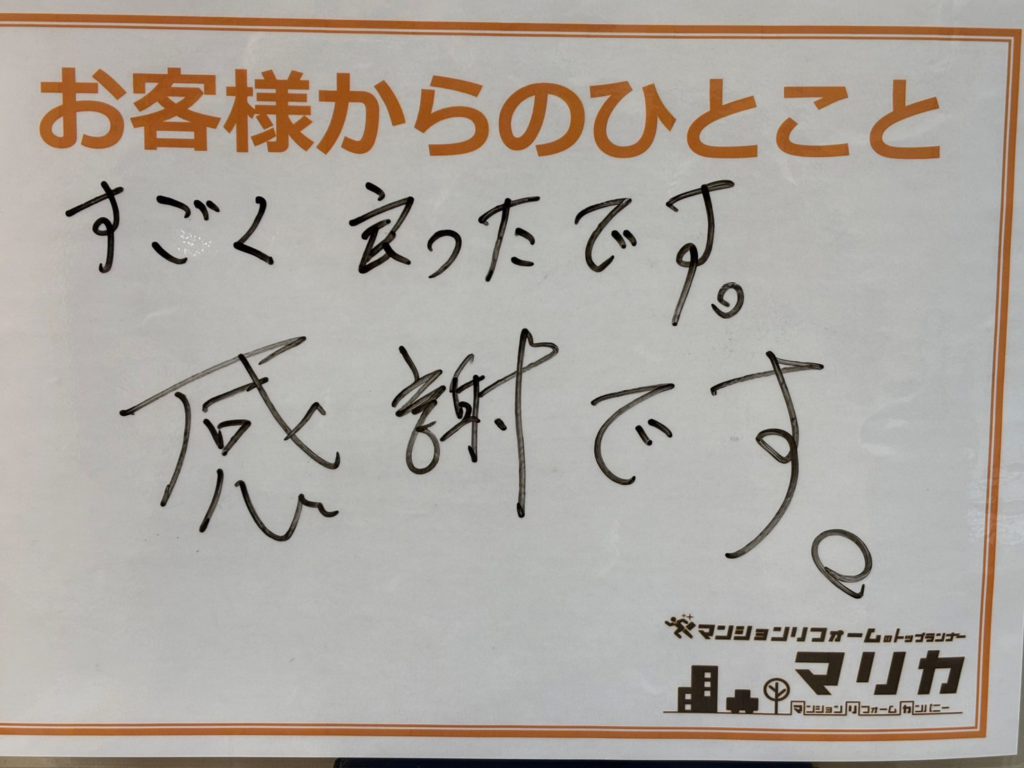 お客様からのひとこと
すごく 良ったです。
感謝です。
マンションリフォームのトップランナー
マリカ
マンションリフォームカンパニー